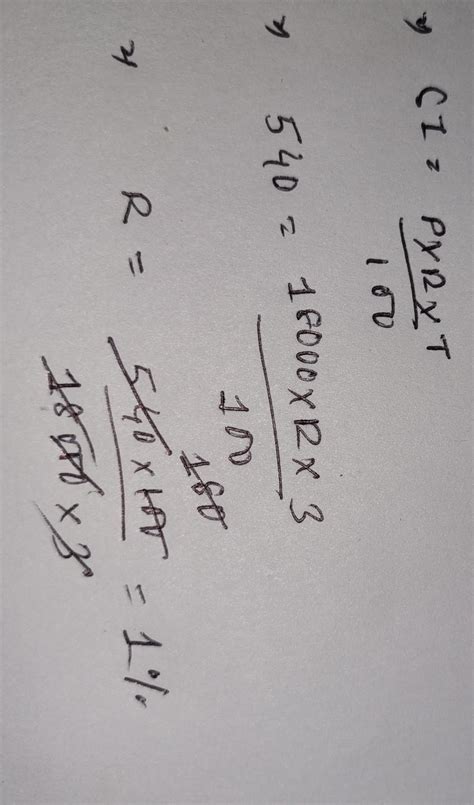 ⇒ CI = P×R×T / 100
⇒ 540 = 18000×R×3 / 100
⇒ R = 540×100 / 18000×3 = 1%
180